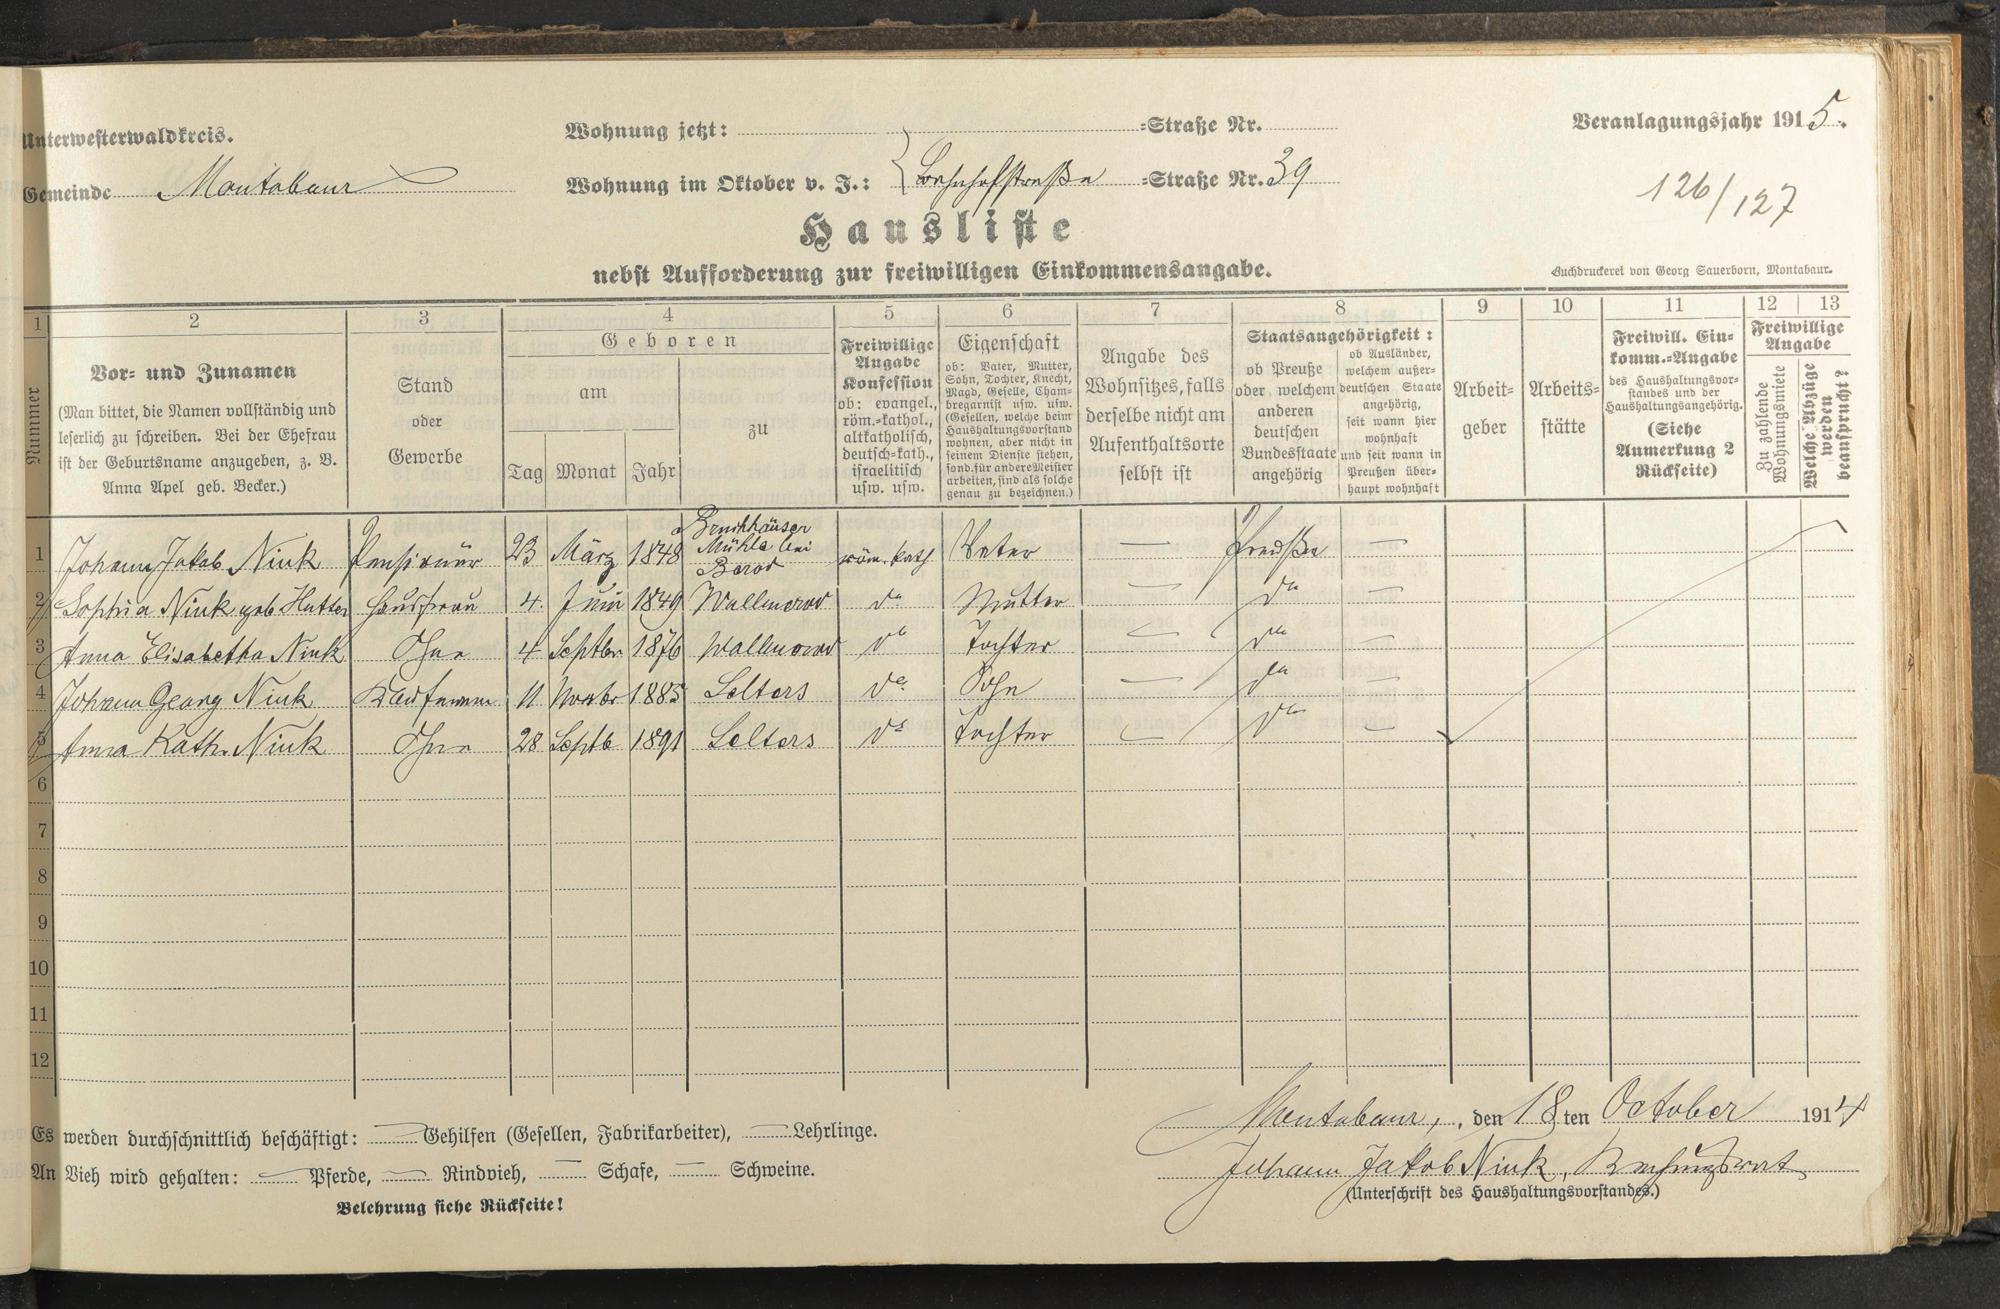 Unterwesterwaldkreis.
Wohnung jetzt: -Straße Nr.
Veranlagungsjahr 1915.
Gemeinde Montabaur
Wohnung im Oktober v. J.: Bahnhofstraße -Straße Nr. 39
126/127
Hausliste
nebst Aufforderung zur freiwilligen Einkommensangabe.
Buchdruckerei von Georg Sauerborn, Montabaur.
1 2 3 4 5 6 7 8 9 10 11 12 13
Nummer
Vor- und Zunamen
(Man bittet, die Namen vollständig und
leserlich zu schreiben. Bei der Ehefrau
ist der Geburtsname anzugeben, z. B.
Anna Apel geb. Becker.)
Stand
oder
Gewerbe
Geboren
am
Tag Monat Jahr
zu
Freiwillige
Angabe
Konfession
ob: evangel.,
röm.-kathol.,
altkatholisch,
deutsch-kath.,
israelitisch
usw. usw.
Eigenschaft
ob: Vater, Mutter,
Sohn, Tochter, Knecht,
Magd, Geselle, Cham-
bregarnist usw. usw.
(Gesellen, welche beim
Haushaltungsvorstand
wohnen, aber nicht in
seinem Dienste stehen,
sond. für andere Meister
arbeiten, sind als solche
genau zu bezeichnen.)
Angabe des
Wohnsitzes, falls
derselbe nicht am
Aufenthaltsorte
selbst ist
Staatsangehörigkeit:
ob Preuße
oder welchem
anderen
deutschen
Bundesstaate
angehörig
ob Ausländer,
welchem außer-
deutschen Staate
angehörig,
seit wann hier
wohnhaft
und seit wann in
Preußen über-
haupt wohnhaft
Arbeit-
geber
Arbeits-
stätte
Freiwill. Ein-
komm.-Angabe
des Haushaltungsvor-
standes und der
Haushaltungsangehörig.
(Siehe
Anmerkung 2
Rückseite)
Freiwillige
Angabe
Zu zahlende
Wohnungsmiete
Welche Abzüge
werden
beansprucht?
1 Johann Jakob Nink Pensionär 23 März 1848 Bruchhäuser Mühle bei Berod röm. kath. Vater — Preußen —
2 Sophia Nink geb. Hatter Hausfrau 4. Juni 1849 Wallmerod do Mutter — do —
3 Anna Elisabetha Nink Ohne 4 Septbr 1876 Wallmerod do Tochter — do —
4 Johann Georg Nink Kaufmann 11 Novbr 1885 Selters do Sohn — do —
5 Anna Kath. Nink Ohne 28 Septb 1891 Selters do Tochter — do —
6
7
8
9
10
11
12
Montabaur, den 18ten October 1914
Es werden durchschnittlich beschäftigt: — Gehilfen (Gesellen, Fabrikarbeiter), — Lehrlinge.
Johann Jakob Nink,
An Vieh wird gehalten: — Pferde, — Rindvieh, — Schafe, — Schweine.
(Unterschrift des Haushaltungsvorstandes.)
Belehrung siehe Rückseite!